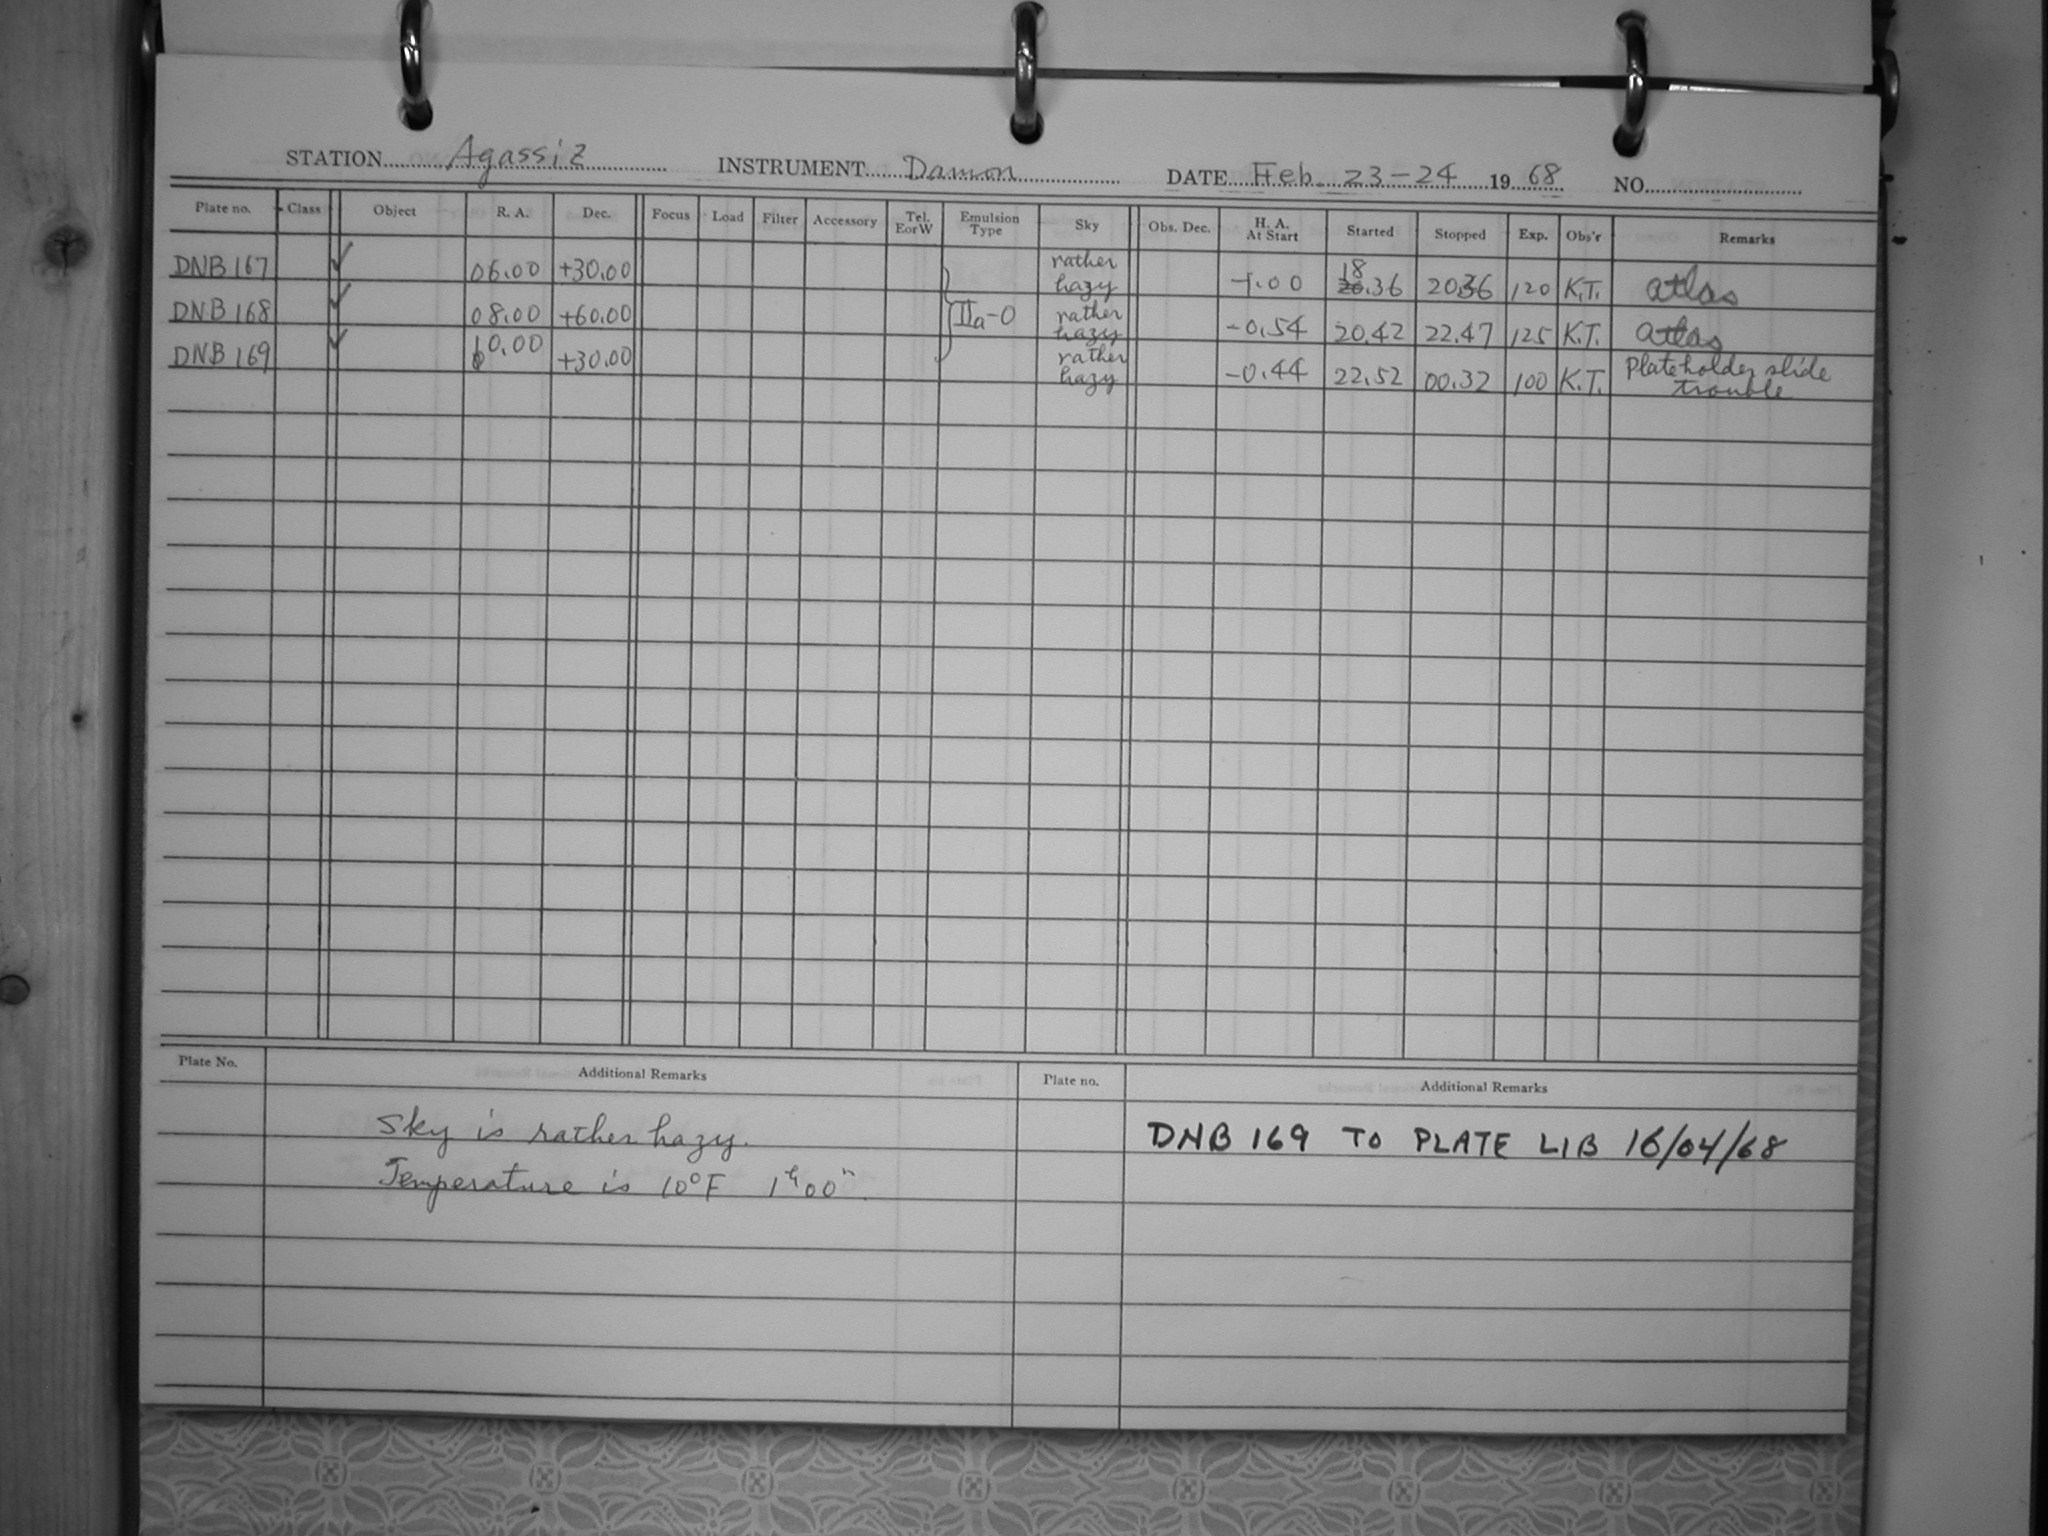 STATION Agassiz INSTRUMENT Damon DATE Feb. 23-24 1968 NO.
Plate no. Class Object R. A. Dec. Focus Load Filter Accessory Tel. E or W Emulsion Type Sky Obs. Dec. H. A. At Start Started Stopped Exp. Obs'r Remarks
DNB 167 ✓ 06.00 +30.00 rather hazy 18.36 20.36 120 K.T. atlas
DNB 168 ✓ 08.00 +60.00 IIa-O rather hazy -0.54 20.42 22.47 125 K.T. atlas
DNB 169 ✓ 10.00 +30.00 rather hazy -0.44 22.52 00.32 100 K.T. Plateholder slide trouble
Plate No. Additional Remarks Plate no. Additional Remarks
Sky is rather hazy. DNB 169 TO PLATE LIB 16/04/68
Temperature is 10°F 1h00m